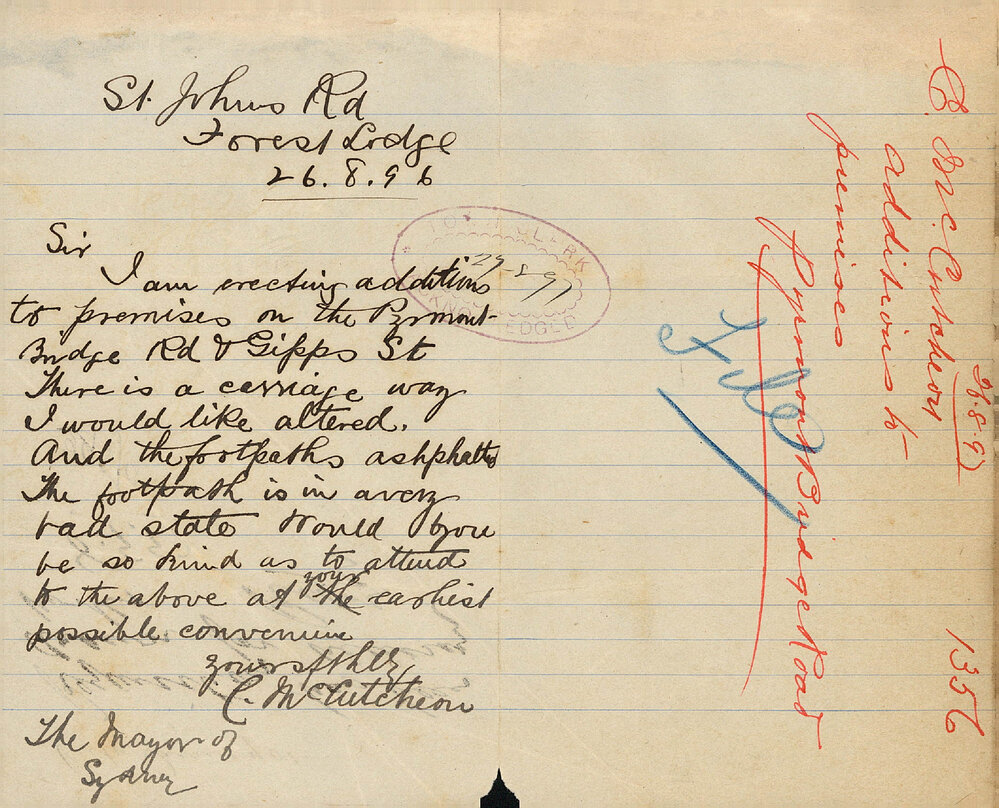 St. Johns Rd
Forest Lodge
26.8.96
Sir
I am erecting additions
to premises on the Pyrmont
Bridge Rd & Gipps St
There is a carriage way
I would like altered.
And the footpaths ashphalted
The footpath is in a very
bad state Would you
be so kind as to attend
to the above at your the earliest
possible convenience
yours fthly
C. McCutcheon
The Mayor of
Sydney
TOWN CLERK
29-8-97
C. McCutcheon
additions to
premises
Pyrmont Bridge Road
File
1356